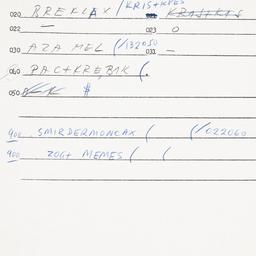 020 BREKLAX / KRIS+KVES KRAS+KAS
022 — 023 0
030 AZA MEL (/132050 033 —
060 PAC+KREBIK (.
050 $
900 SMIRDERMONCAX ( (/022060
900 ZOG+ MEMES ( (